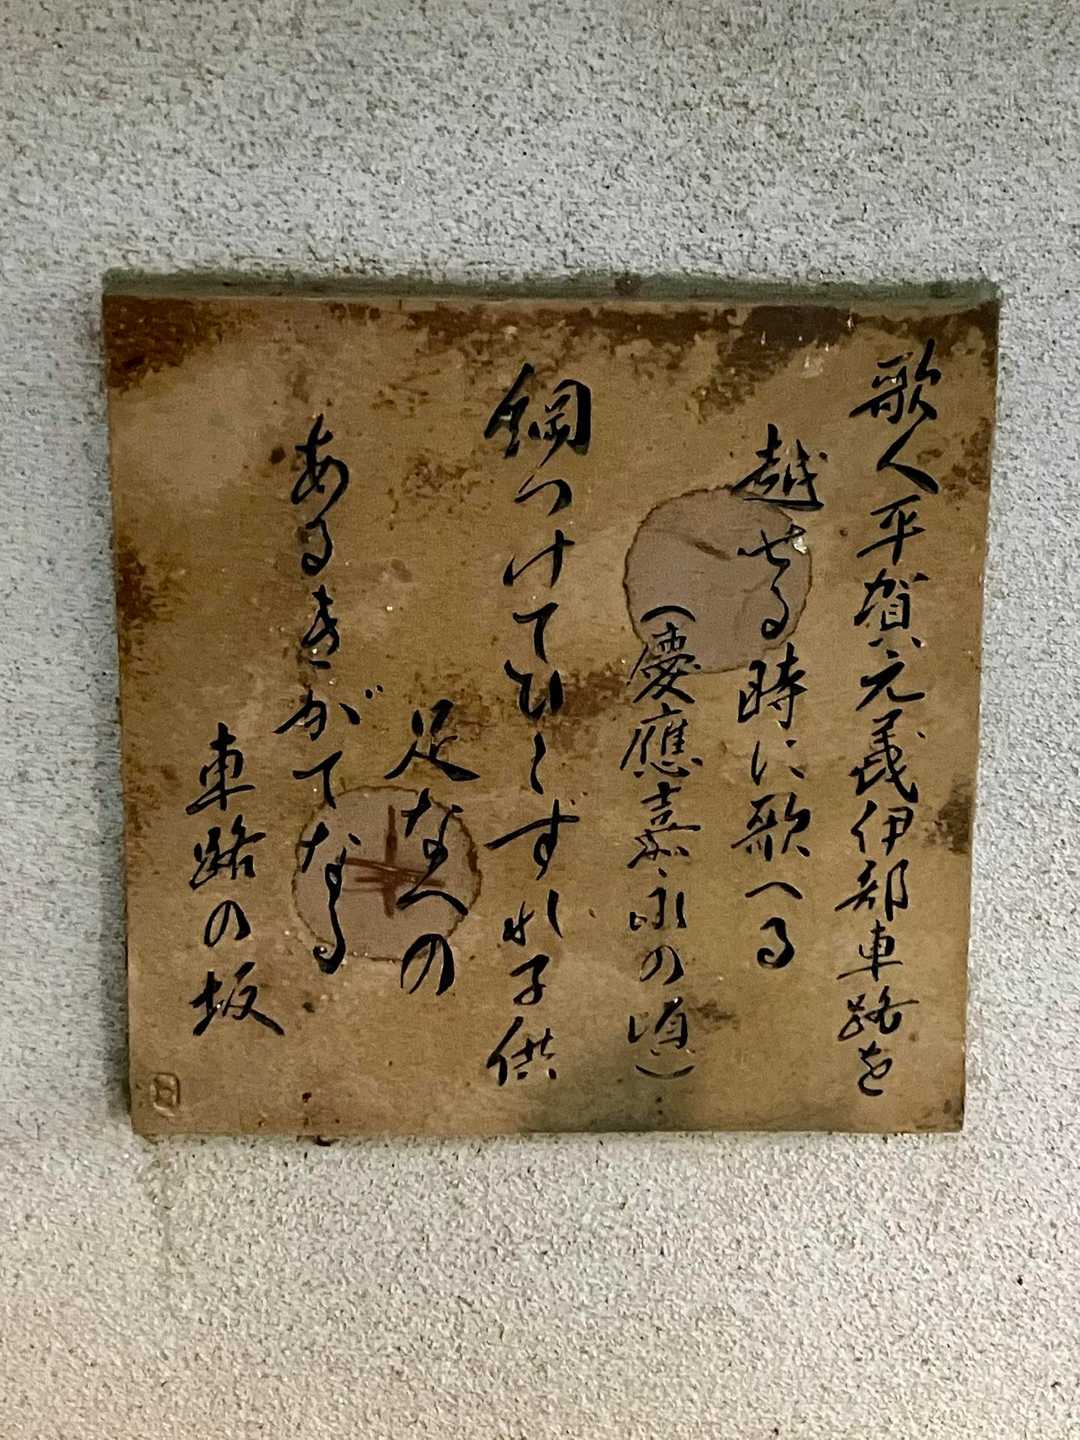 歌人平賀元義伊部車路を
越せる時に歌へる
(慶應嘉永の頃)
綱つけてひくずれ子供
足なへの
あるきがてなる
車路の坂